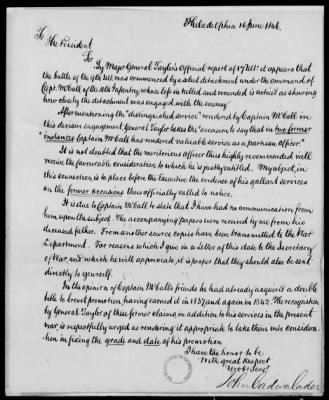 Philadelphia 16 June 1846.
To The President
Sir
By Major General Taylor's Official report of 17 Ult: it appears that
the battle of the 9th Ult. was commenced by a select detachment under the command of
Capt. McCall of the 4th Infantry, whose loss in killed and wounded is noticed as shewing
how closely the detachment was engaged with the enemy.
After mentioning the "distinguished service" rendered by Captain McCall in
this decisive engagement, General Taylor takes the "occasion to say that in two former
instances Captain McCall has rendered valuable service as a partisan officer."
It is not doubted that the meritorious officer thus highly recommended will
receive the favorable consideration to which he is justly entitled. My object, in
this connection, is to place before the Executive the evidence of his gallant services
on the former occasions thus officially called to notice.
It is due to Captain McCall to state that I have had no communication from
him upon the subject. The accompanying papers were received by me from his
deceased father. From another source copies have been transmitted to the War
Department. For reasons which I give in a Letter of this date to the Secretary
of War, and which he will appreciate, it is proper that they should also be sent
directly to yourself.
In the opinion of Captain McCall's friends he had already acquired a double
title to brevet promotion, having earned it in 1837 and again in 1842. The recognition
by General Taylor of these former claims, in addition to his services in the present
war, is respectfully urged as rendering it appropriate to take them into considera-
tion in fixing the grade and date of his promotion
I have the honor to be
With great respect
John Cadwalader